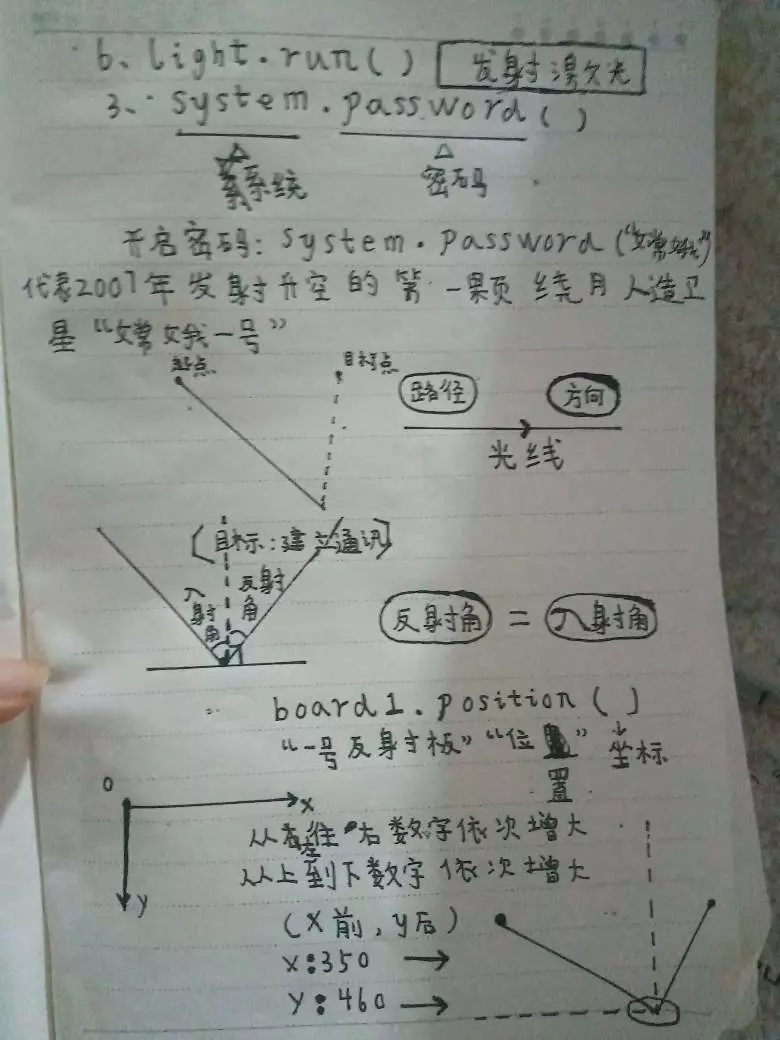 6、light.run() 发射激光
3、system.password()
系统 密码
开启密码: System.Password("嫦娥")
代表2007年发射升空的第一颗绕月人造卫
星“嫦娥一号”
起点 目标点
路径 方向
光线
[目标:建立通讯]
入射角 反射角
反射角 = 入射角
board1.position()
“一号反射板”“位置” 坐标
0 x
从左往右数字依次增大
从上到下数字依次增大
y
(X前,y后)
x:350
y:460